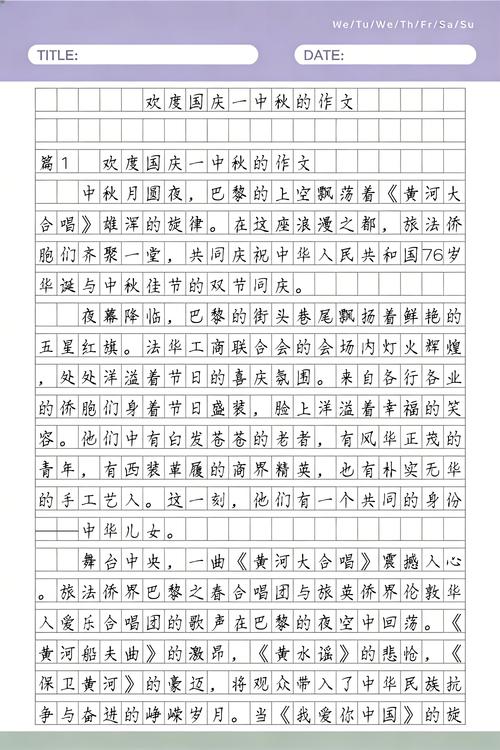 We/Tu/We/Th/Fr/Sa/Su
TITLE:
DATE:
欢度国庆一中秋的作文
篇1 欢度国庆一中秋的作文
中秋月圆夜，巴黎的上空飘荡着《黄河大
合唱》雄浑的旋律。在这座浪漫之都，旅法侨
胞们齐聚一堂，共同庆祝中华人民共和国76岁
华诞与中秋佳节的双节同庆。
夜幕降临，巴黎的街头巷尾飘扬着鲜艳的
五星红旗。法华工商联合会的会场内灯火辉煌
，处处洋溢着节日的喜庆氛围。来自各行各业
的侨胞们身着节日盛装，脸上洋溢着幸福的笑
容。他们中有白发苍苍的老者，有风华正茂的
青年，有西装革履的商界精英，也有朴实无华
的手工艺人。这一刻，他们有一个共同的身份
——中华儿女。
舞台中央，一曲《黄河大合唱》震撼人心
。旅法侨界巴黎之春合唱团与旅英侨界伦敦华
人爱乐合唱团的歌声在巴黎的夜空中回荡。《
黄河船夫曲》的激昂，《黄水谣》的悲怆，《
保卫黄河》的豪迈，将观众带入了中华民族抗
争与奋进的峥嵘岁月。当《我爱你中国》的旋